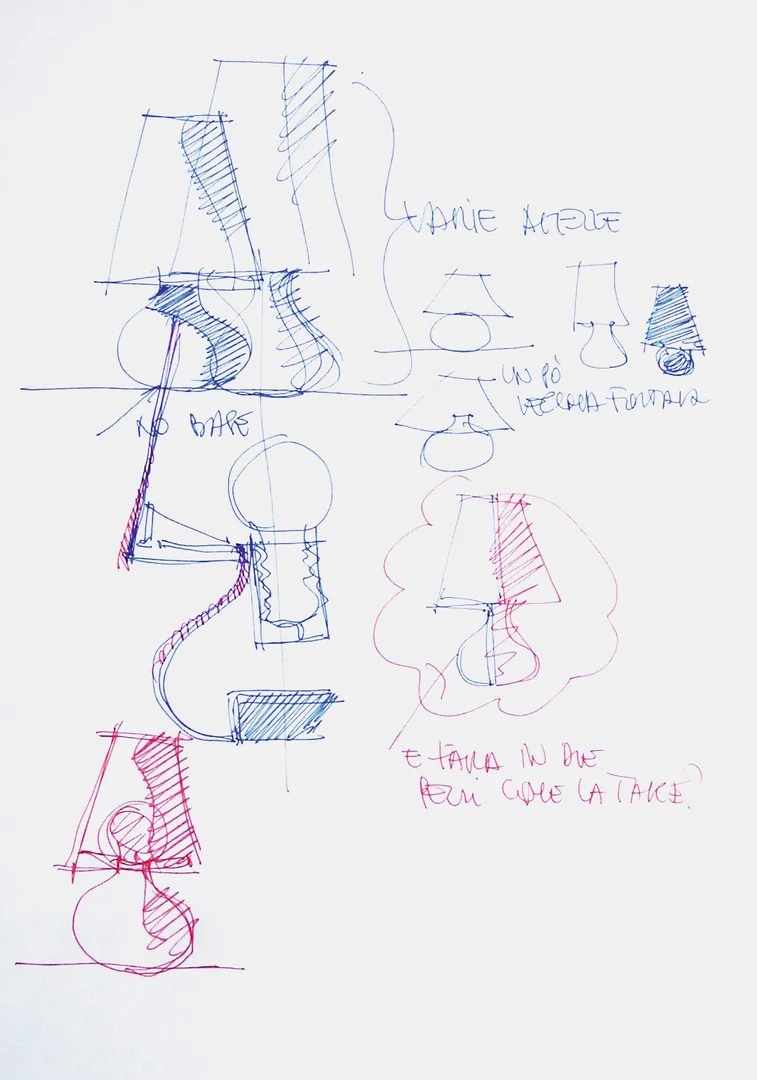 VARIE ALTEZZE
UN PÒ
VECCHIA FONTANA
NO BASE
E FARLA IN DUE
PEZZI COME LA TAKE?